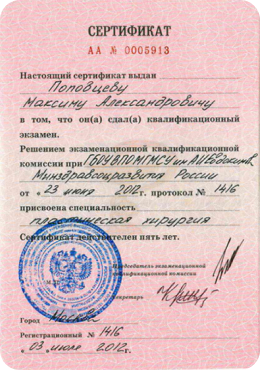 СЕРТИФИКАТ
АА № 0005913
Настоящий сертификат выдан
Поповцеву
Максиму Александровичу
в том, что он(а) сдал(а) квалификационный
экзамен.
Решением экзаменационной квалификационной
комиссии при ГБОУ ВПО МГМСУ им А.И. Евдокимова
Минздравсоцразвития России
от « 23 июня 2012 г. протокол № 1416
присвоена специальность
пластическая хирургия
Сертификат действителен пять лет.
Председатель экзаменационной
квалификационной комиссии
Секретарь
Город Москва
Регистрационный № 1416
« 03 » июля 2012 г.